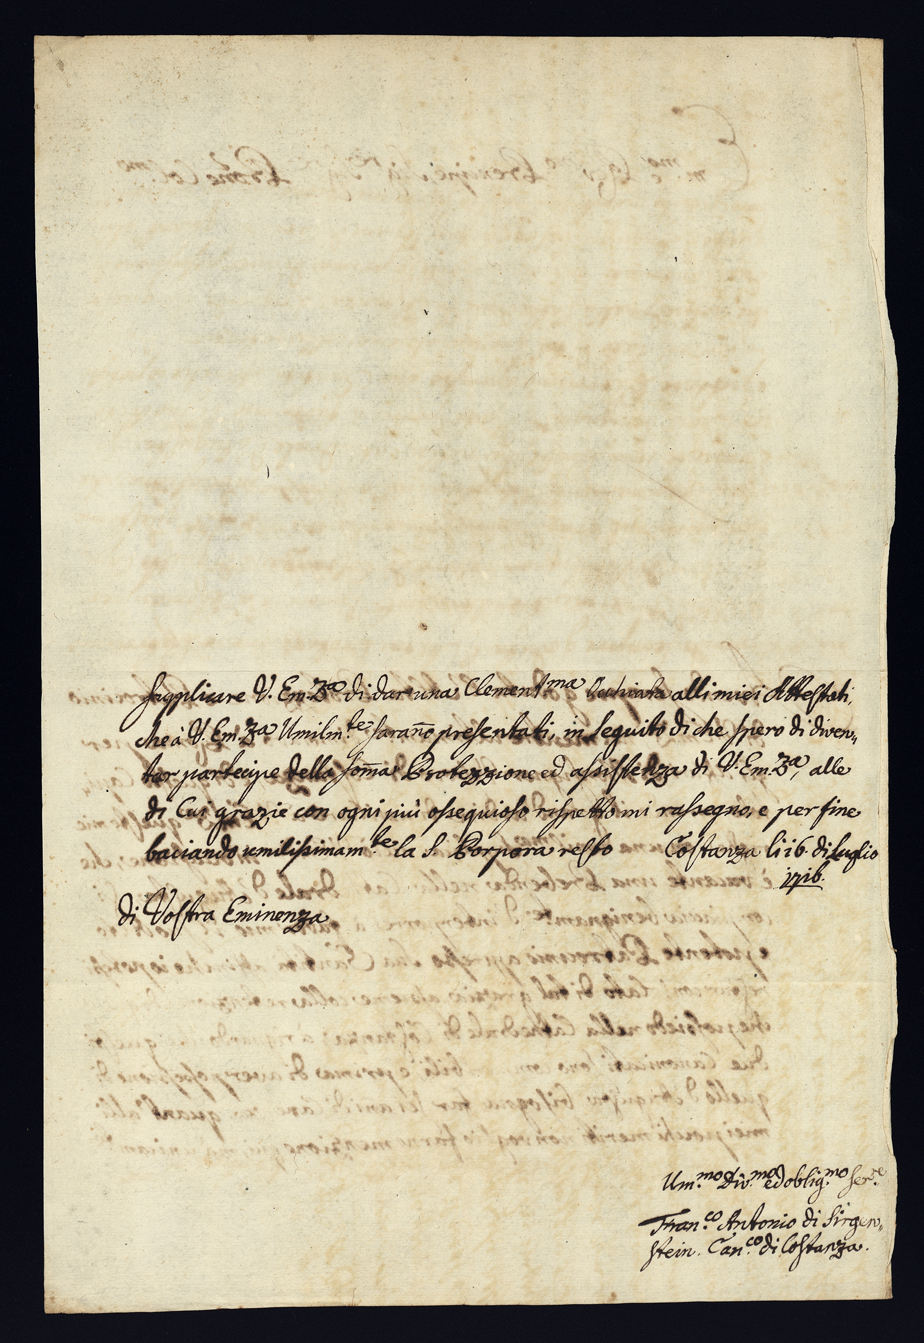 supplicare V. Em.Za di dar una Clementma occhiata alli miei Attestati,
che à V. Em.Za Umilm.te saran̄o presentati, in seguito di che spero di diven„
tar partecipe della som̄a Protezzione ed assistedza di V. Em.Za, alle
di Cui grazie con ogni più ossequioso rispetto mi rassegno, e per fine
baciando umilissimamte la S. Porpora resto Costanza li 16. di Luglio
1716.
di Vostra Eminenza
Um.mo Div.mo ed oblig.mo ser.re
Fran.co Antonio di Sirgen„
stein. Can.co di Costanza.